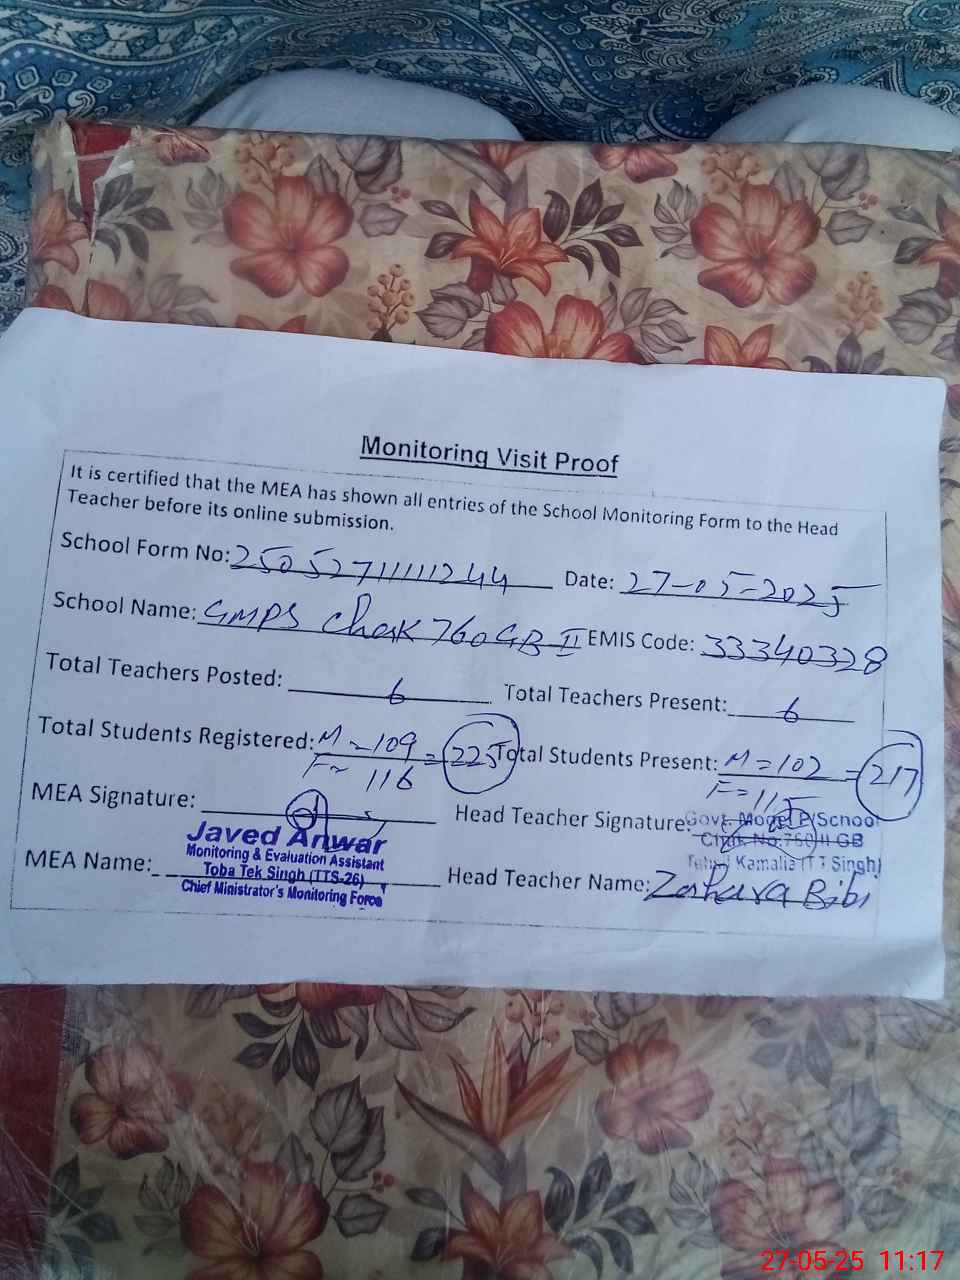 Monitoring Visit Proof
It is certified that the MEA has shown all entries of the School Monitoring Form to the Head
Teacher before its online submission.
School Form No: 2505271111244 Date: 27-05-2025
School Name: GMPS Chak 760 GB II EMIS Code: 33340328
Total Teachers Posted: 6 Total Teachers Present: 6
Total Students Registered: M = 109 = 225 Total Students Present: M = 102 = 217
F = 116 F = 115
MEA Signature: Head Teacher Signature: Govt. Model P/School
Javed Anwar Chak No. 760/II GB
Monitoring & Evaluation Assistant Kamalia (T T Singh)
MEA Name: Toba Tek Singh (TTS-26) Head Teacher Name: Zahara Bibi
Chief Ministrator's Monitoring Force
27-05-25 11:17